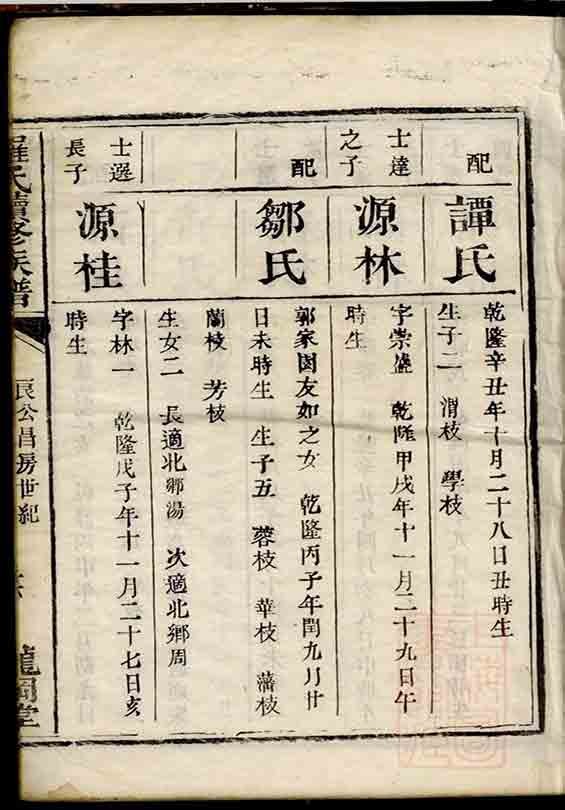 配
譚氏
乾隆辛丑年十月二十八日丑時生
生子二 渭枝 學枝
士達
之子
源林
字崇盛 乾隆甲戌年十一月二十九日午
時生
配
鄒氏
郭家園友如之女 乾隆丙子年閏九月廿
日未時生 生子五 蓉枝 華枝 藩枝
蘭枝 芳枝
生女二 長適北鄉湯 次適北鄉周
士選
長子
源桂
字林一 乾隆戊子年十一月二十七日亥
時生
羅氏續修族譜
公昌房世紀
龍岡堂